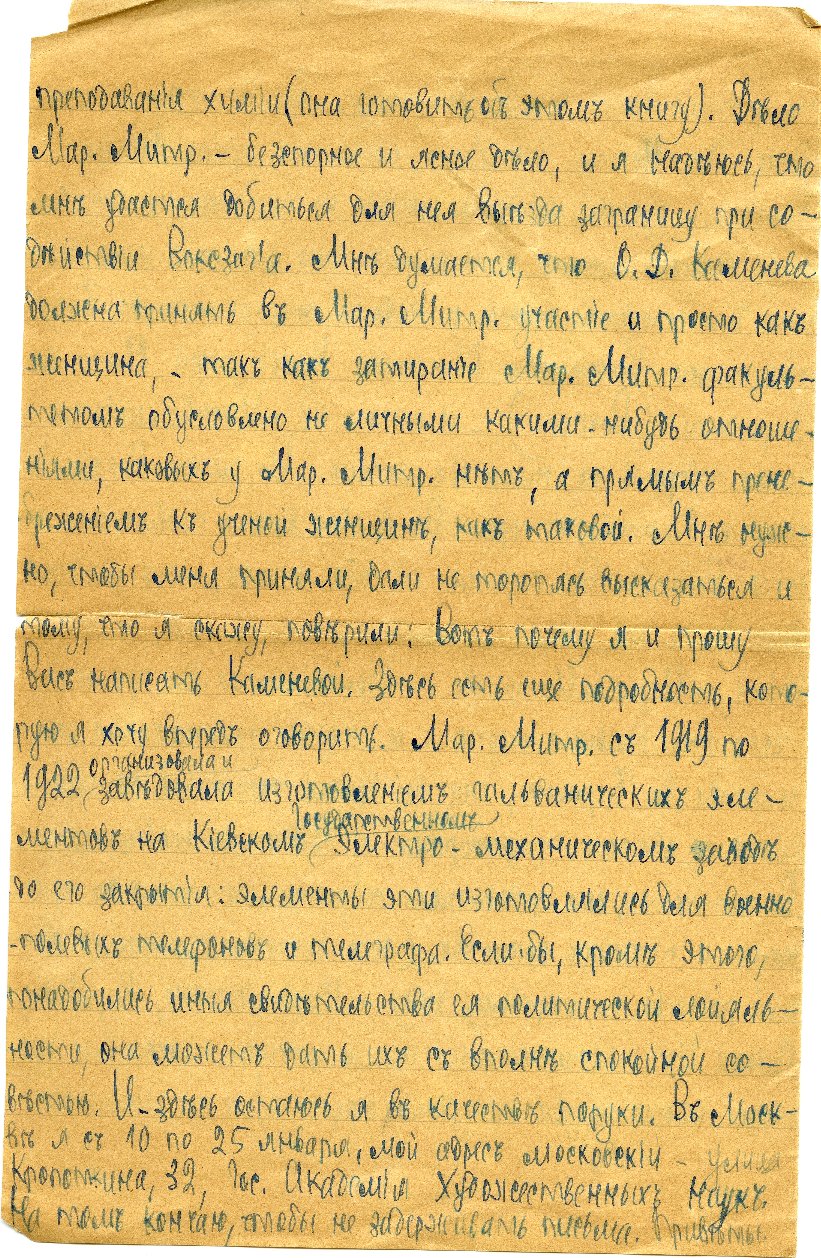 преподаванія химіи (она готовитъ объ этомъ книгу). Дѣло
Мар. Митр. – безспорное и ясное дѣло, и я надѣюсь, что
мнѣ удастся добиться для нея выѣзда заграницу при со-
дѣйствіи Воксзаг'а. Мнѣ думается, что О. Д. Каменева
должна принять въ Мар. Митр. участіе и просто какъ
женщина, – такъ какъ затираніе Мар. Митр. факуль-
тетомъ обусловлено не личными какими-нибудь отноше-
ніями, каковыхъ у Мар. Митр. нѣтъ, а прямымъ прене-
бреженіемъ къ ученой женщинѣ, какъ таковой. Мнѣ нуж-
но, чтобы меня приняли, дали не торопясь высказаться и
тому, что я скажу, повѣрили: Вотъ почему я и прошу
Васъ написать Каменевой. Здѣсь есть еще подробность, кото-
рую я хочу впередъ оговорить. Мар. Митр. съ 1919 по
организовала и
1922 завѣдовала изготовленіемъ гальваническихъ эле-
Государственномъ
ментовъ на Кіевскомъ Электро-механическомъ заводѣ
до его закрытія: элементы эти изготовлялись для военно
-полевыхъ телефоновъ и телеграфа. Если бы, кромѣ этого,
понадобились иныя свидѣтельства ея политической лойяль-
ности, она можетъ дать ихъ съ вполнѣ спокойной со-
вѣстью. И здѣсь остаюсь я въ качествѣ поруки. Въ Моск-
вѣ я съ 10 по 25 января, мой адресъ московскій – улица
Кропоткина, 32, Гос. Академія Художественныхъ Наукъ.
На томъ кончаю, чтобы не задерживать письма. Привѣты.